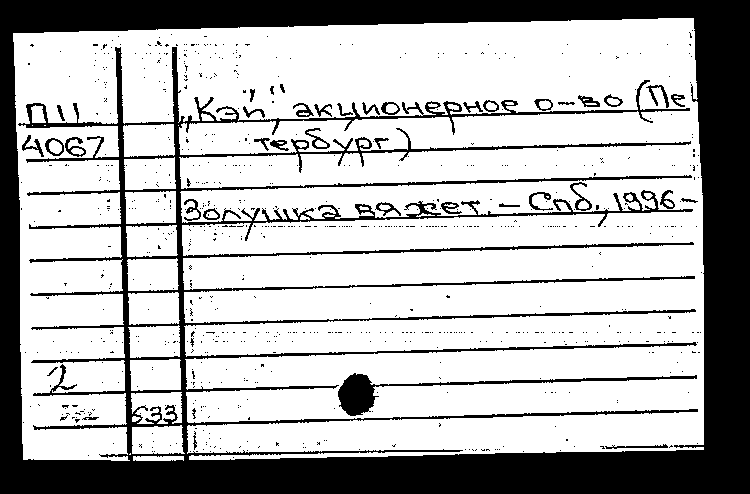 П11 „Кэй", акционерное о-во (Пе
4067 тербург)
Золушка вяжет. – Спб., 1996 –
2
533